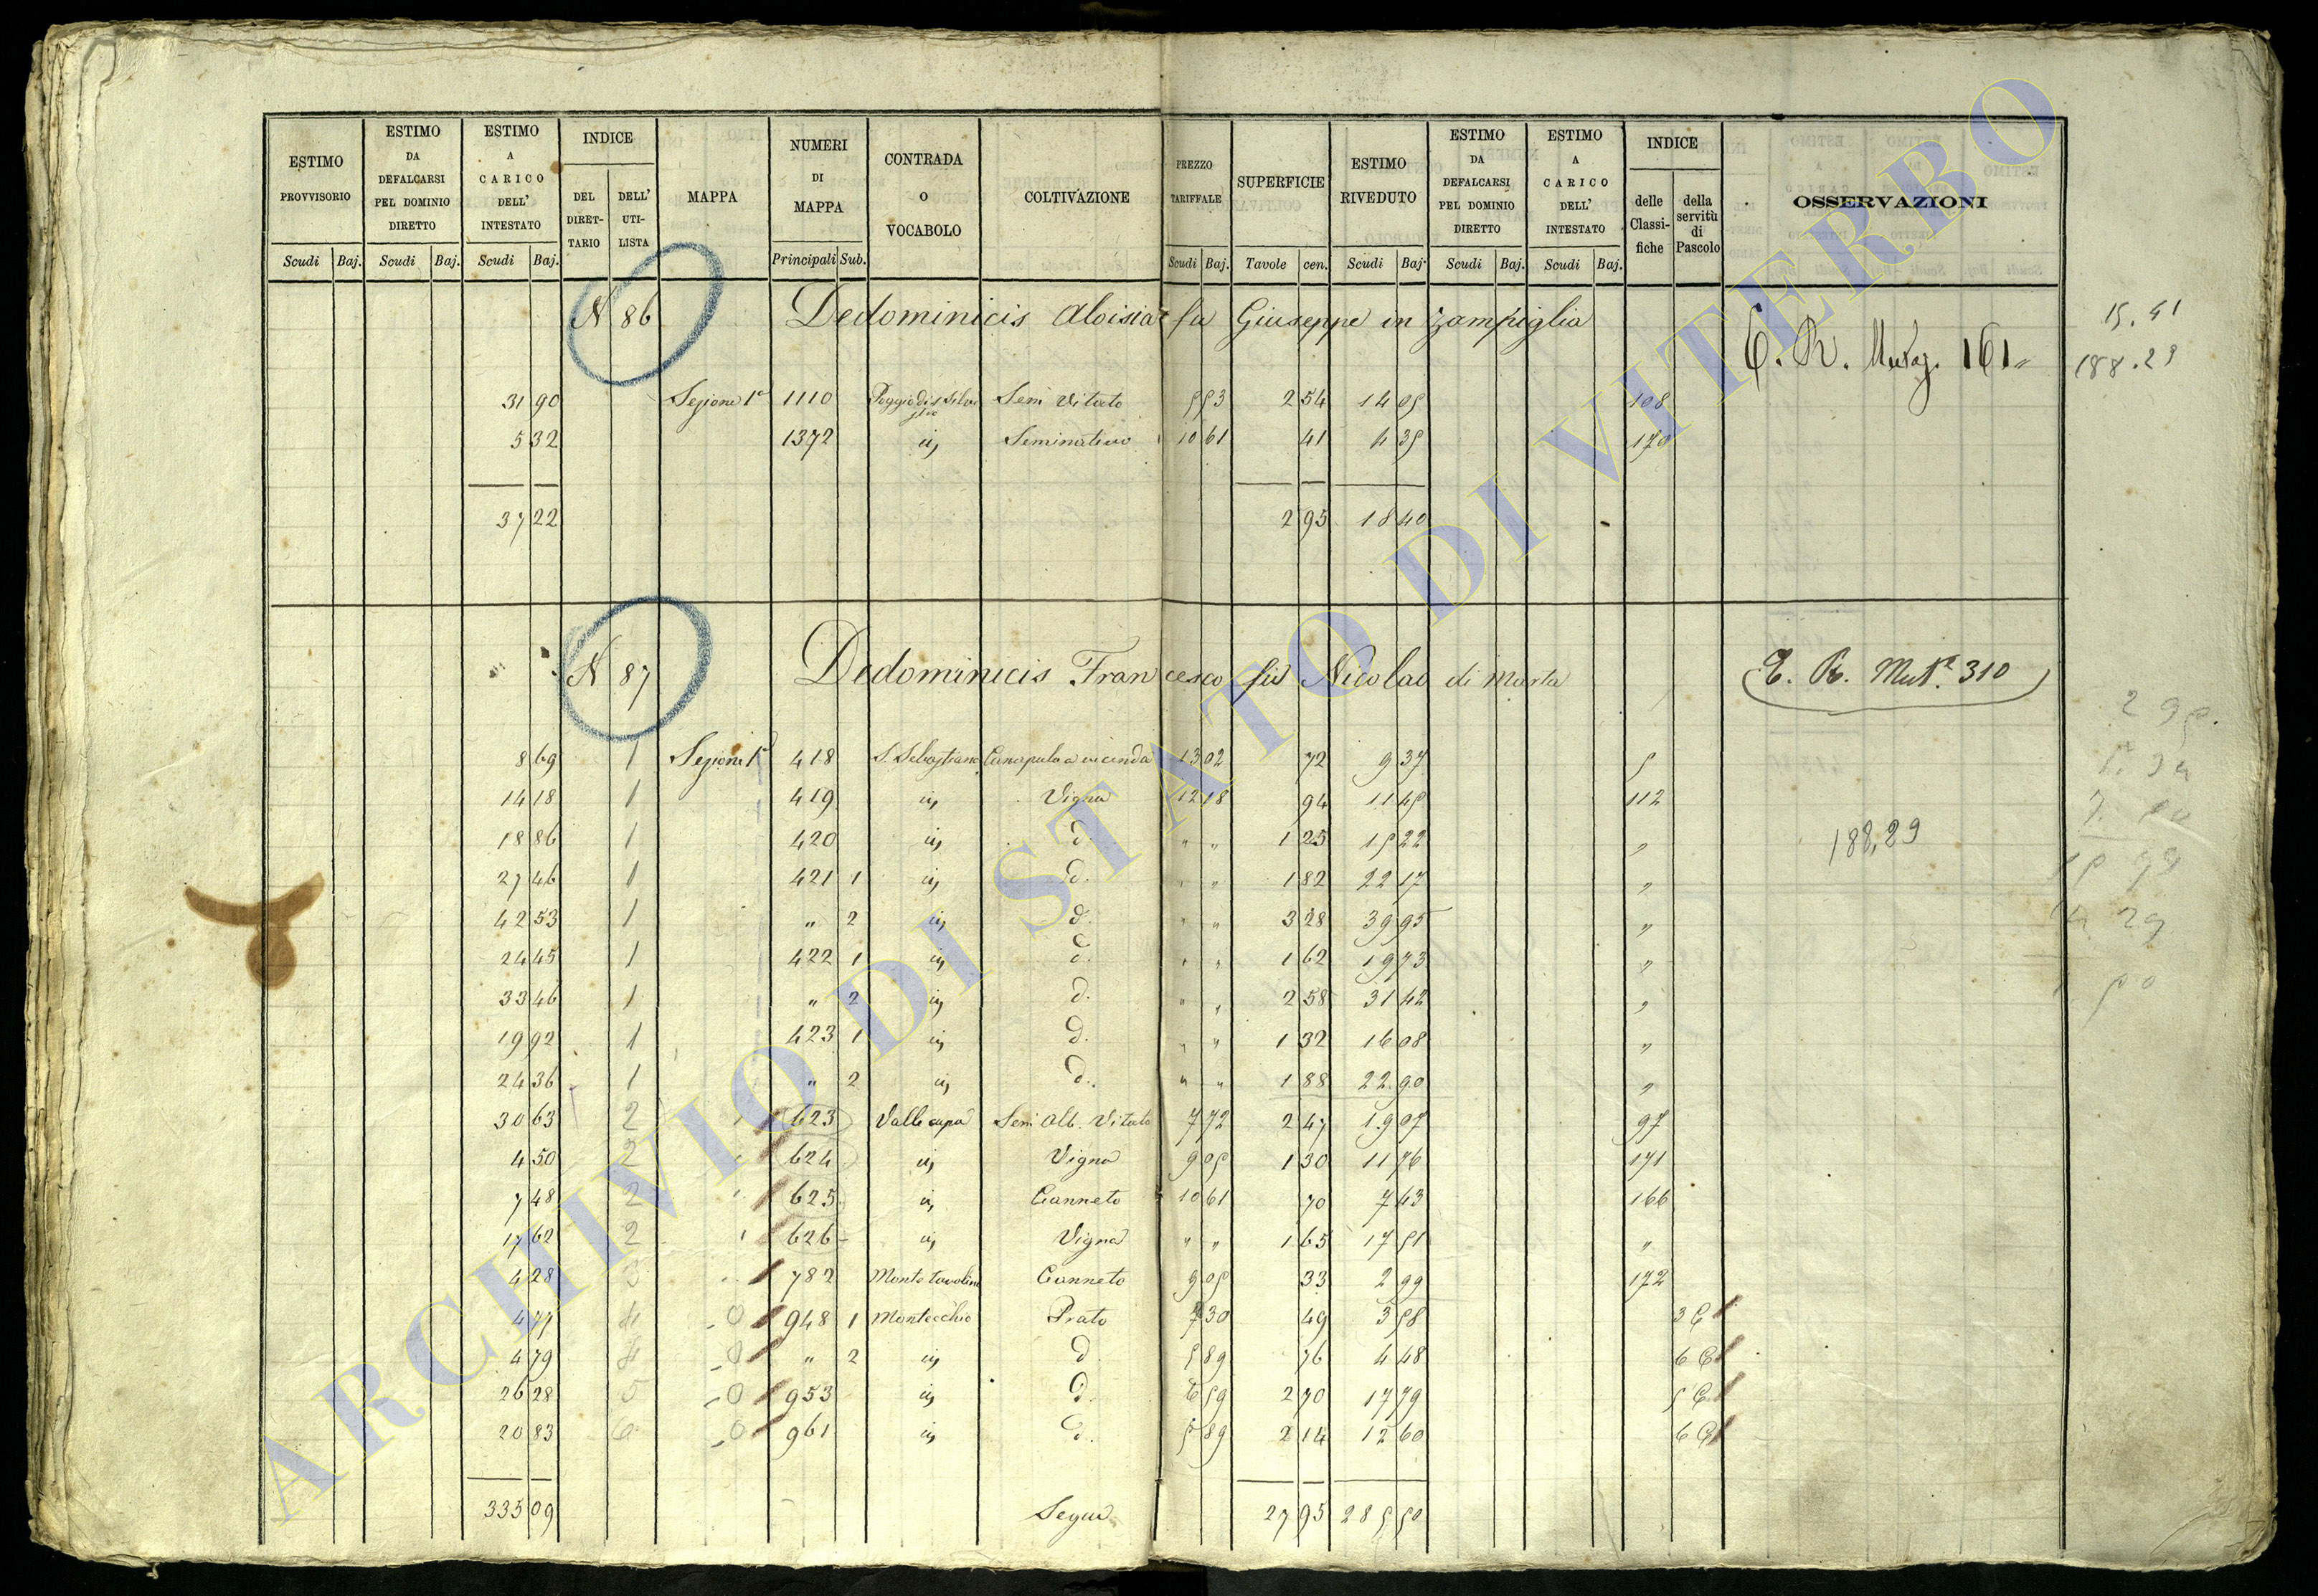 ESTIMO PROVVISORIO Scudi Baj. ESTIMO DA DEFALCARSI PEL DOMINIO DIRETTO Scudi Baj. ESTIMO A CARICO DELL' INTESTATO Scudi Baj. INDICE DEL DIRET-TARIO DELL' UTI-LISTA MAPPA NUMERI DI MAPPA Principali Sub. CONTRADA O VOCABOLO COLTIVAZIONE PREZZO TARIFFALE Scudi Baj. SUPERFICIE Tavole cen. ESTIMO RIVEDUTO Scudi Baj. ESTIMO DA DEFALCARSI PEL DOMINIO DIRETTO Scudi Baj. ESTIMO A CARICO DELL' INTESTATO Scudi Baj. INDICE delle Classi-fiche della servitù di Pascolo OSSERVAZIONI
N 86 Dedominicis Aloisia fu Giuseppe in Zampiglia
15.41
188.29
31 90 Sezione 1ª 1110 Sem Vitato 5 53 2 54 14 05 108
5 32 1372 Seminativo 10 61 41 4 35 170
37 22 2 95 18 40
N 87 Dedominicis Francesco fu Nicolao di Marta E. R. Mut.ª 310
8 69 1 Sezione 1ª 418 S. Sebastiano Canapula a vicenda 13 02 72 9 37 5
14 18 1 419 Vigna 12 18 94 11 45 112
18 86 1 420 d. " " 1 25 15 22 "
188,29
27 46 1 421 1 d. " " 1 82 22 17 "
42 53 1 " 2 d. " " 3 28 39 95 "
24 45 1 422 1 d. " " 1 62 19 73 "
33 46 1 " 2 d. " " 2 58 31 42 "
19 92 1 423 1 d. " " 1 32 16 08 "
24 36 1 " 2 d. " " 1 88 22 90 "
30 63 2 623 Valle cupa Sem Alb. Vitato 7 72 2 47 19 07 97
4 50 2 624 Vigna 9 05 1 30 11 76 171
7 48 2 625 Canneto 10 61 70 7 43 166
17 62 2 626 Vigna " " 1 65 17 51 "
4 28 3 782 Canneto 9 05 33 2 99 172
4 77 4 948 1 Montecchio Prato 7 30 49 3 58 3
4 79 4 " 2 d 5 89 76 4 48 6
26 28 5 953 d. 6 59 2 70 17 79 5
20 83 6 961 d. 5 89 2 14 12 60 6
335 09 Segue 27 95 285 50
ARCHIVIO DI STATO DI VITERBO